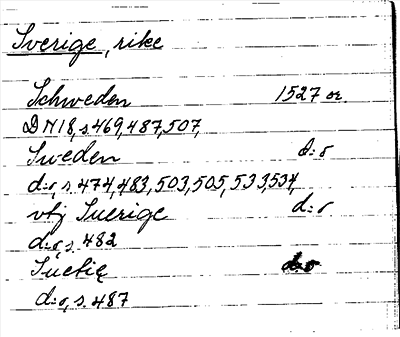 Sverige, rike
Schweden 1527 or.
DN18, s. 469, 487, 507,
Sweden d:o
d:o, s. 474, 483, 503, 505, 533, 534,
vtj Suerige d:o
d:o, s. 482
Suetię d:o
d:o, s. 487